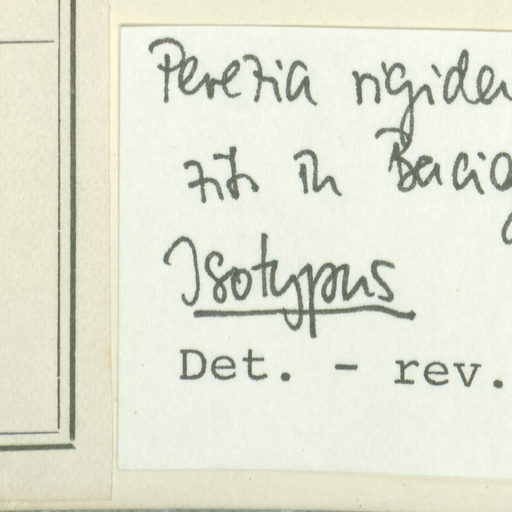 Perezia rigida
zit. in Bacig
Isotypus
Det. - rev.